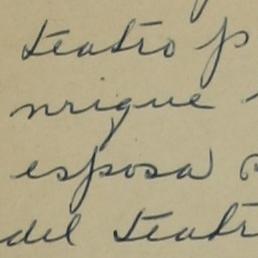 teatro p
nrique
esposa
del teatr